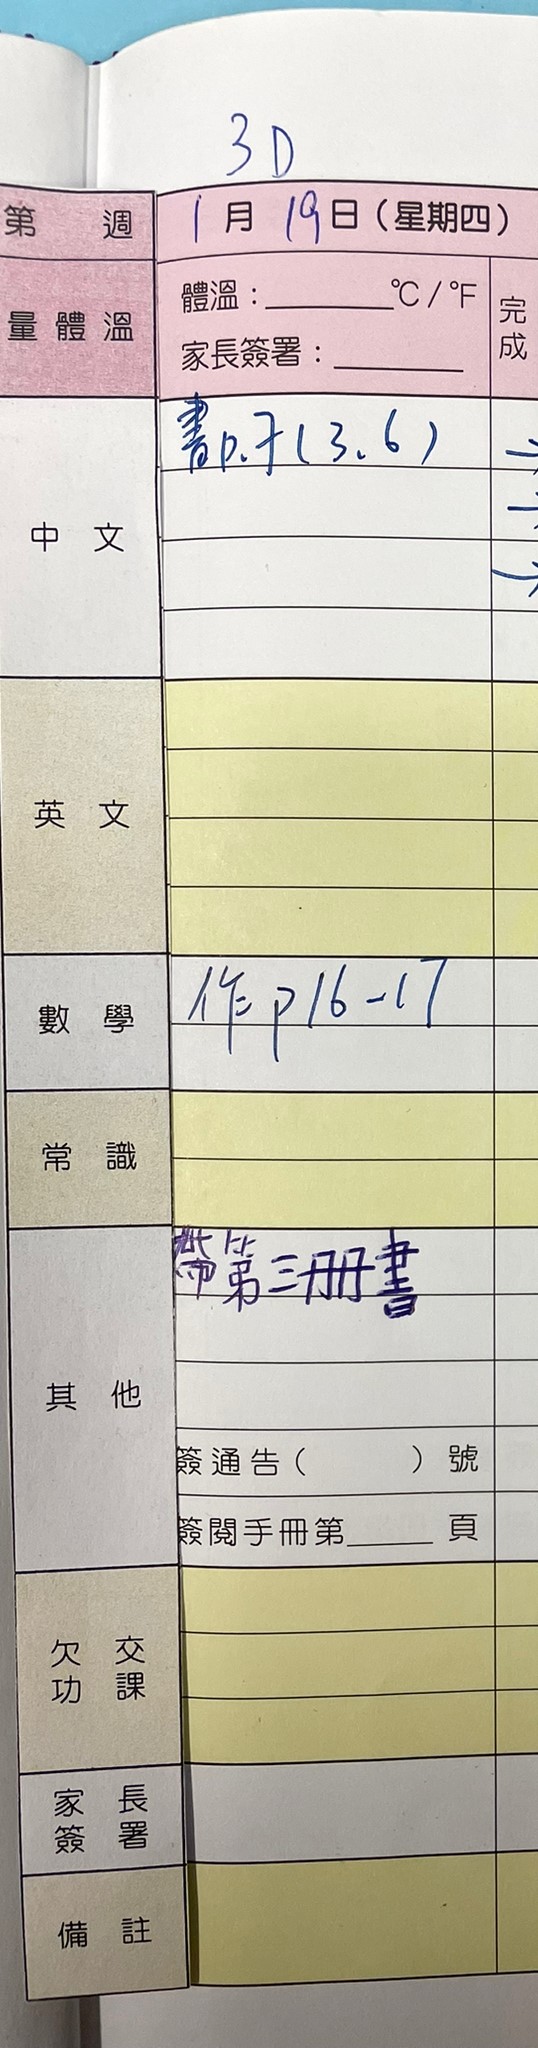 3D
第 週 1月19日(星期四)
量體溫 體溫:______°C/°F 完成
家長簽署:______
中文 書p.7(3.6)
英文
數學 作p16-17
常識
其他 帶第三冊書
簽通告( )號
簽閱手冊第____頁
欠交功課
家長簽署
備註